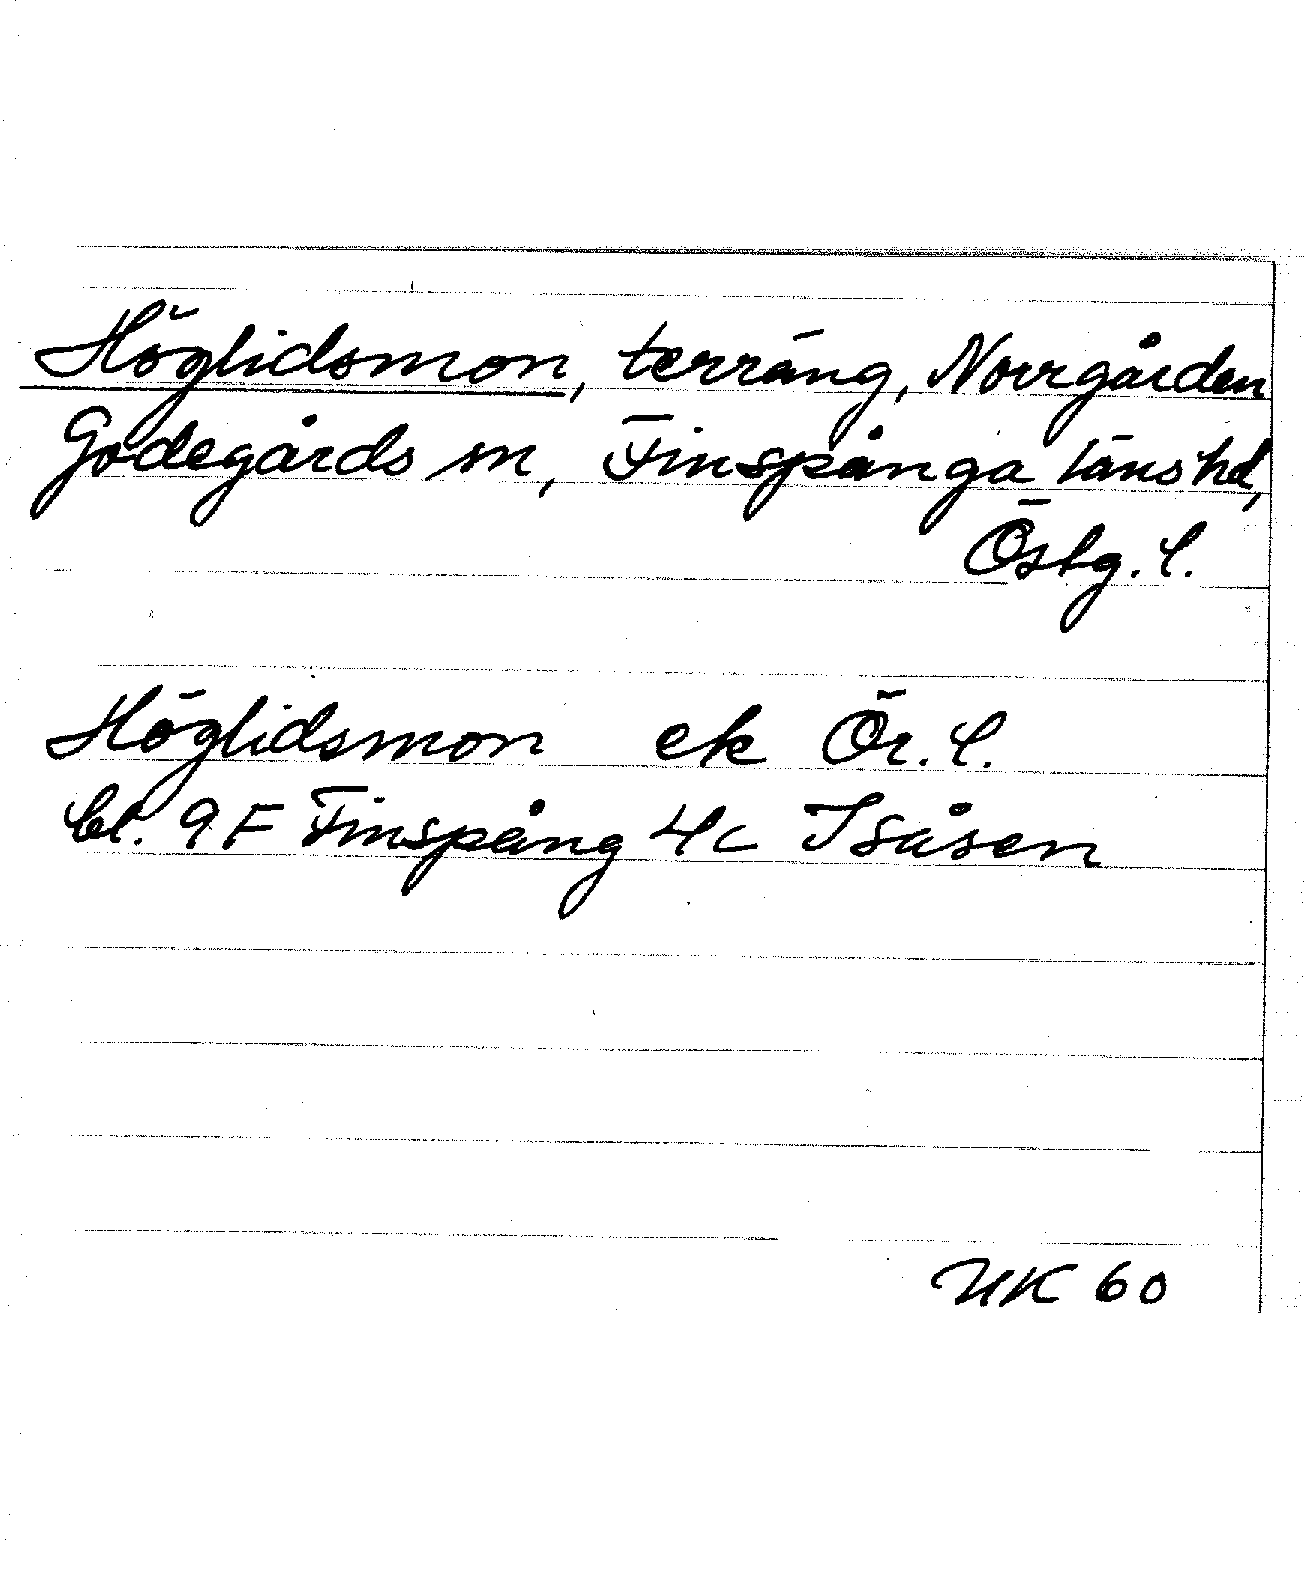 Höglidsmon, terräng, Norrgården
Godegårds sn, Finspånga läns hd,
Östg. l.
Höglidsmon ek Ör. l.
bl. 9F Finspång 4c Isåsen
UK 60